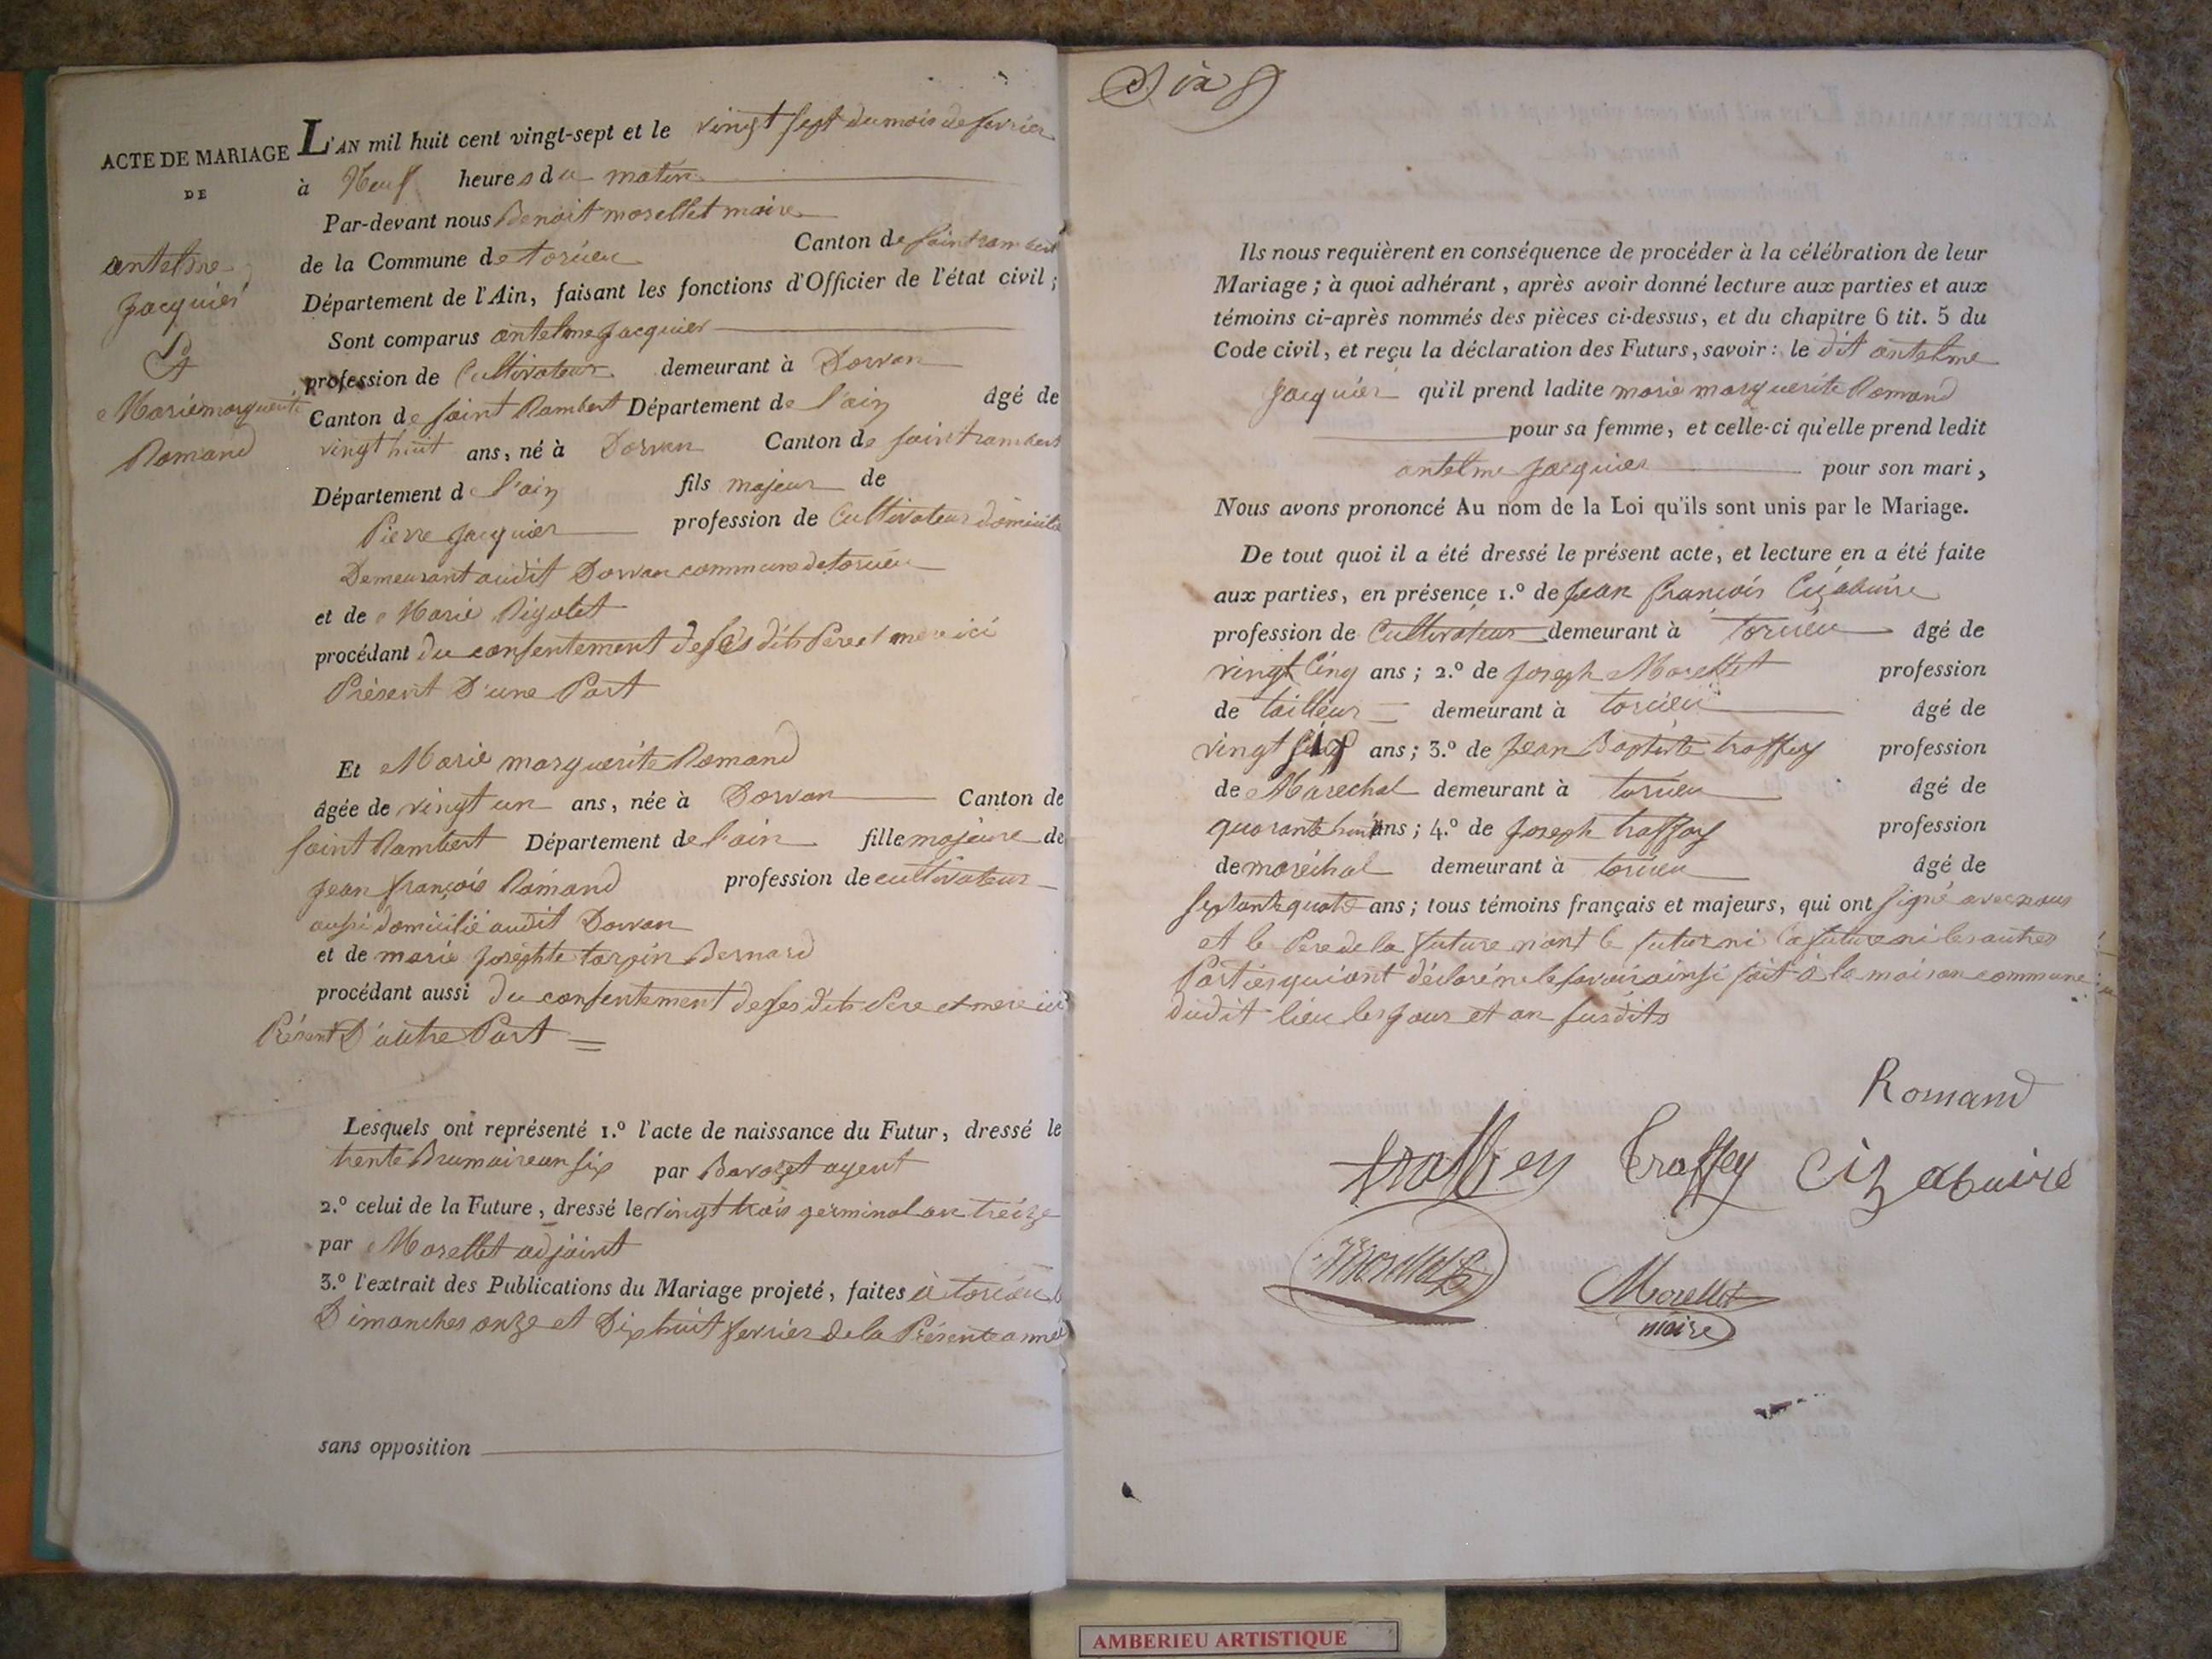 ACTE DE MARIAGE
DE
antelme
Jacquier
&
Marie marguerite
Romand
L'AN mil huit cent vingt-sept et le vingt sept du mois de fevrier
à Neuf heures du matin
Par-devant nous Benoit morellet maire
de la Commune de torcieu Canton de saint rambert
Département de l'Ain, faisant les fonctions d'Officier de l'état civil ;
Sont comparus antelme Jacquier
profession de Cultivateur demeurant à Dorvan
Canton de saint Rambert Département de l'ain âgé de
vingt huit ans, né à Dorvan Canton de saint rambert
Département de l'ain fils majeur de
Pierre Jacquier profession de Cultivateur domicilié
Demeurant audit Dorvan commune de torcieu
et de Marie Rigolet
procédant du consentement de ses dits Pere et mere ici
Présent D'une Part
Et Marie marguerite Romand
âgée de vingt un ans, née à Dorvan Canton de
saint Rambert Département de l'ain fille majeure de
Jean françois Romand profession de cultivateur
aussi domicilié audit Dorvan
et de marie Josephte tarpin Bernard
procédant aussi du consentement de ses dits Pere et mere ici
Présent D'autre Part
Lesquels ont représenté 1.º l'acte de naissance du Futur, dressé le
trente Brumaire an six par Bavozet agent
2.º celui de la Future, dressé le vingt trois germinal an treize
par Morellet adjoint
3.º l'extrait des Publications du Mariage projeté, faites à torcieu les
Dimanches onze et Dix huit fevrier de la Présente année
sans opposition
Six
Ils nous requièrent en conséquence de procéder à la célébration de leur
Mariage ; à quoi adhérant, après avoir donné lecture aux parties et aux
témoins ci-après nommés des pièces ci-dessus, et du chapitre 6 tit. 5 du
Code civil, et reçu la déclaration des Futurs, savoir : le dit antelme
Jacquier qu'il prend ladite marie marguerite Romand
pour sa femme, et celle-ci qu'elle prend ledit
antelme Jacquier pour son mari,
Nous avons prononcé Au nom de la Loi qu'ils sont unis par le Mariage.
De tout quoi il a été dressé le présent acte, et lecture en a été faite
aux parties, en présence 1.º de Jean françois Cizabuire
profession de Cultivateur demeurant à torcieu âgé de
vingt Cinq ans ; 2.º de Joseph Morellet profession
de tailleur demeurant à torcieu âgé de
vingt six ans ; 3.º de Jean Baptiste traffey profession
de Marechal demeurant à torcieu âgé de
quarante huit ans ; 4.º de Joseph traffey profession
de maréchal demeurant à torcieu âgé de
septante quatre ans ; tous témoins français et majeurs, qui ont signé avec nous
et le Pere de la future non le futur ni la future ni les autres
Parties qui ont déclaré ne le savoir ainsi fait à la maison commune
dudit lieu les jour et an susdits
Romand
traffey Traffey Cizabuire
Morellet
Morellet
maire
AMBERIEU ARTISTIQUE